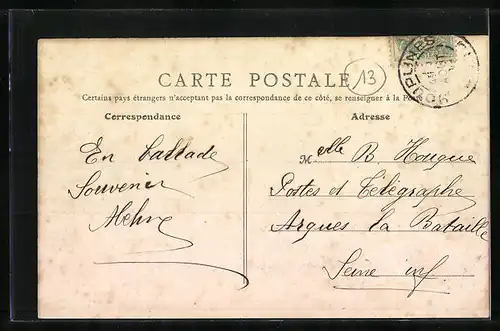 CARTE POSTALE
13
Certains pays étrangers n'acceptant pas la correspondance de ce côté, se renseigner à la Poste
Correspondance
Adresse
En ballade
Souvenir
Melle B. Hougue
Postes et Télégraphe
Arques la Bataille
Seine inf
HOUPLINES